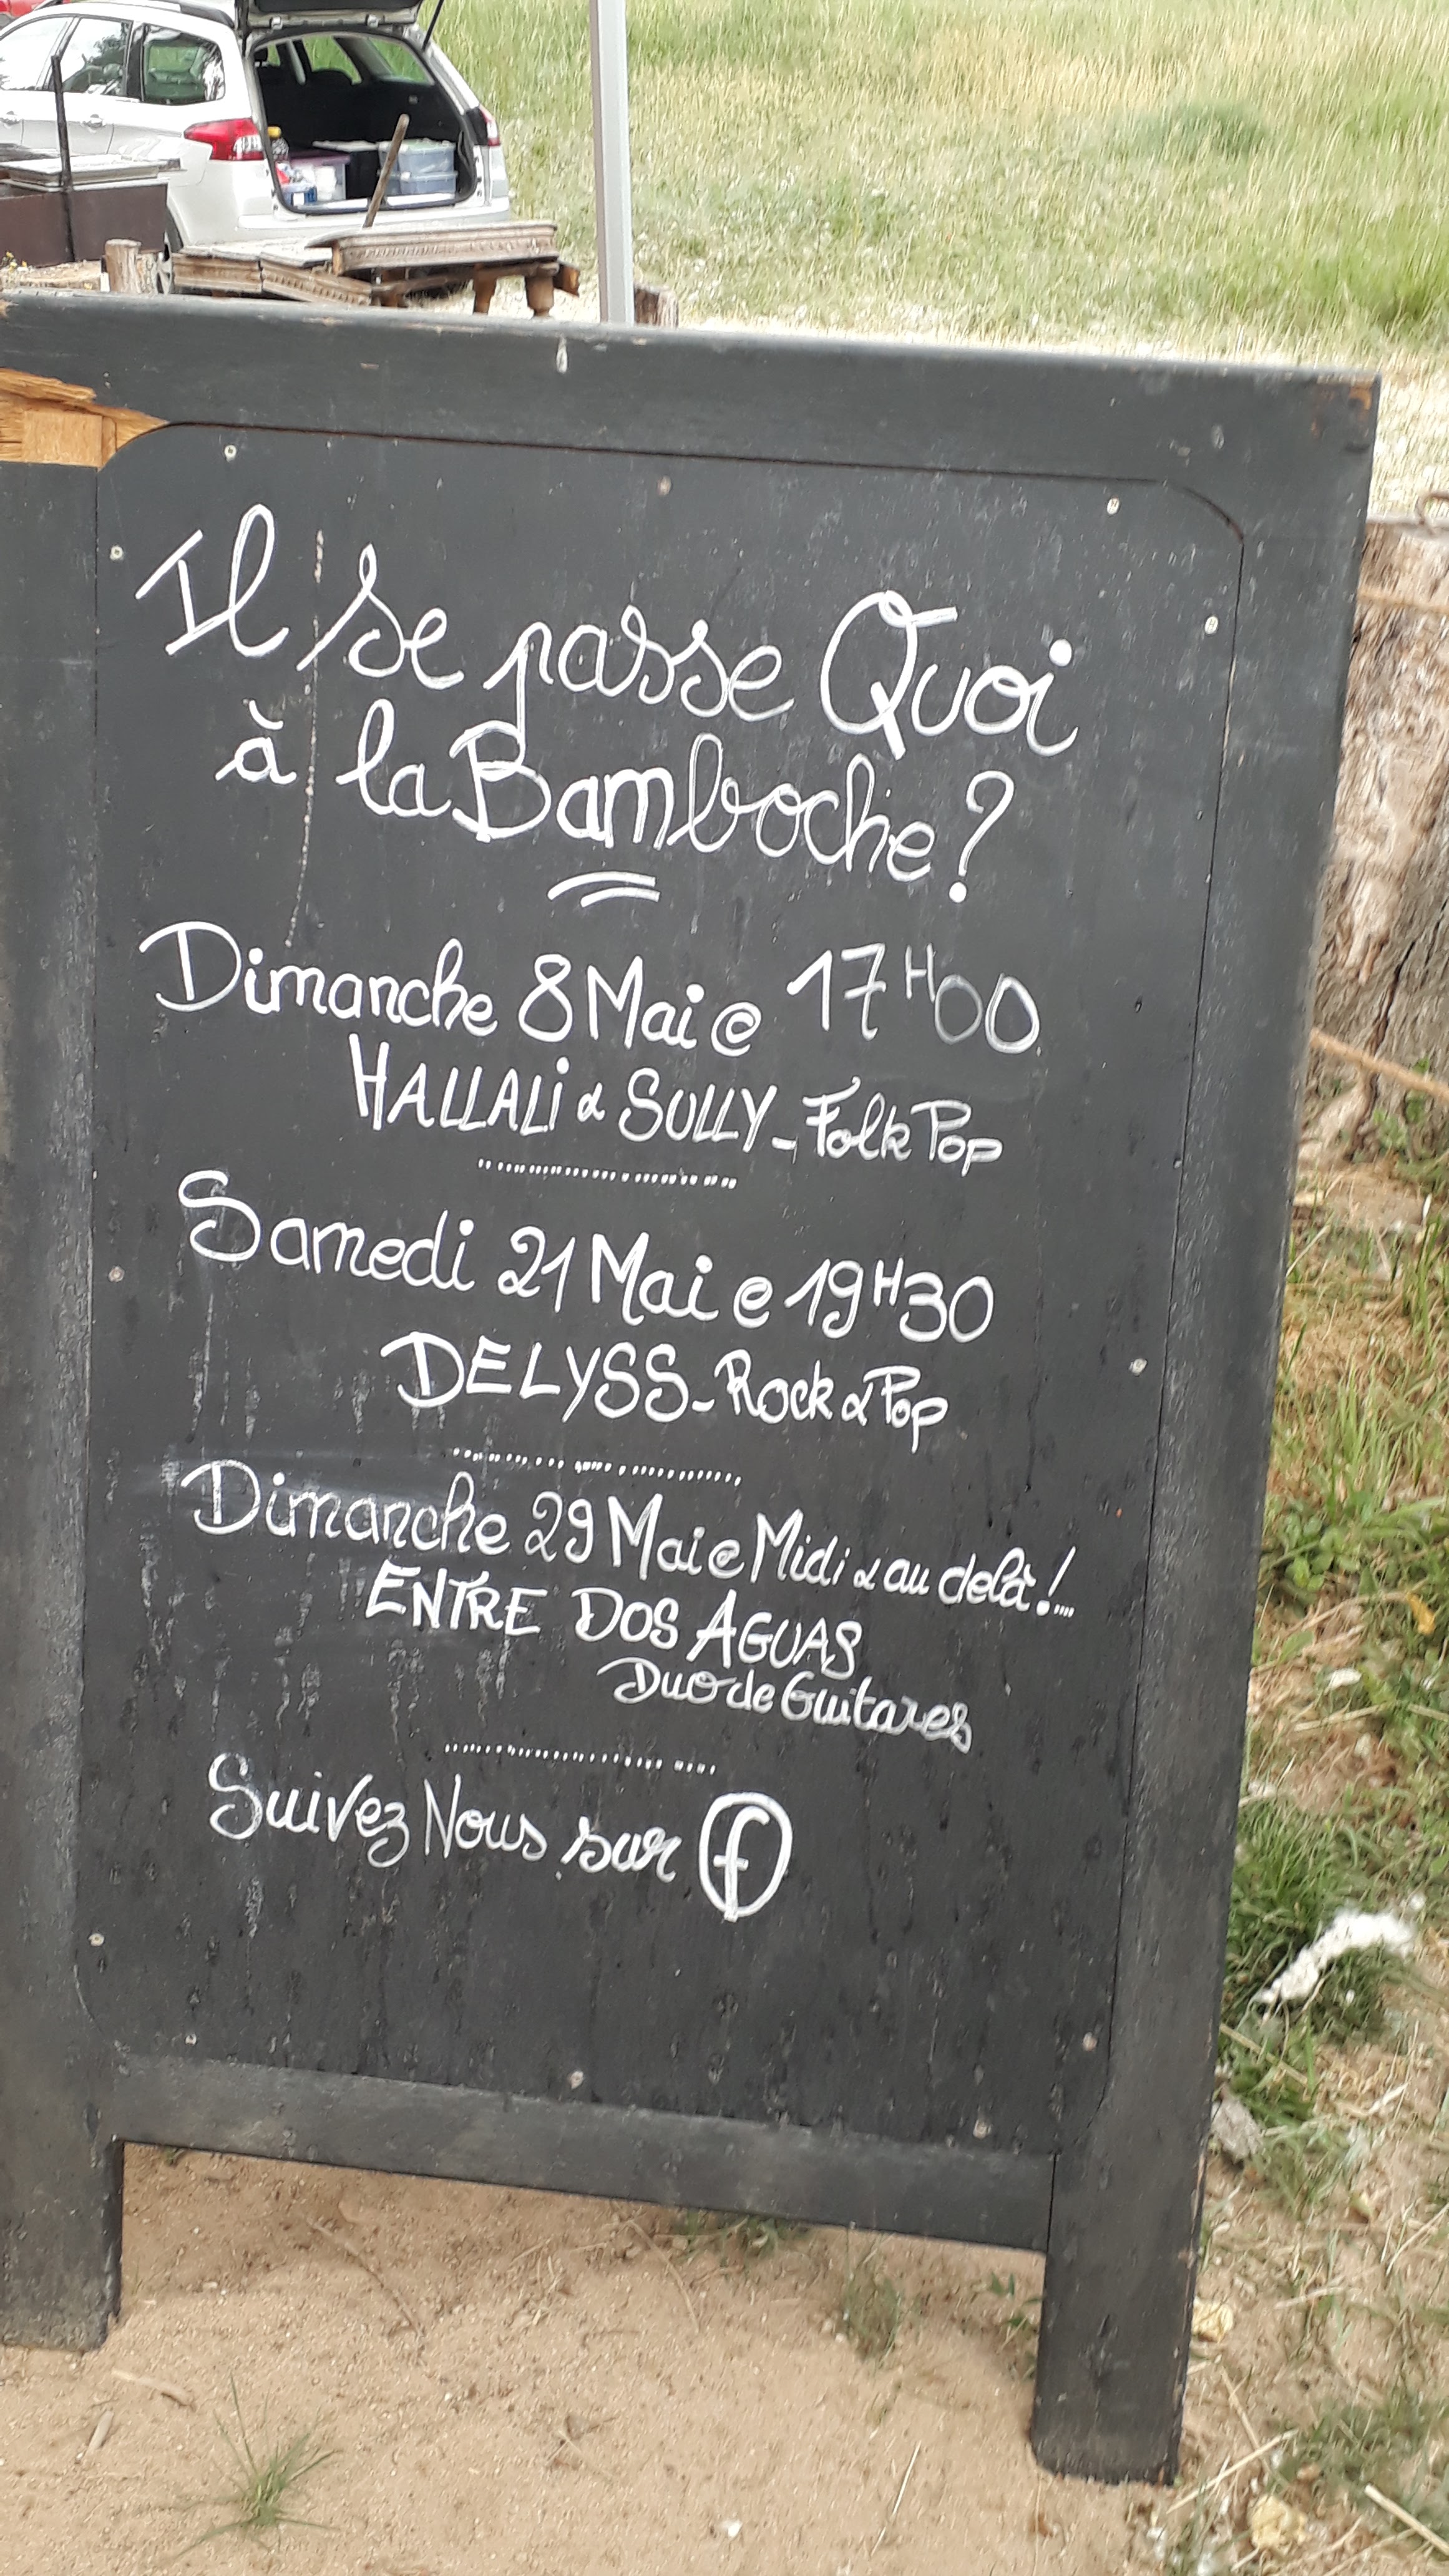 Il se passe Quoi
à la Bamboche?
Dimanche 8 Mai @ 17H00
HALLALi & SULLY - Folk Pop
Samedi 21 Mai @ 19H30
DELYSS - Rock & Pop
Dimanche 29 Mai @ Midi & au delà!...
ENTRE DOS AGUAS
Duo de Guitares
Suivez Nous sur f